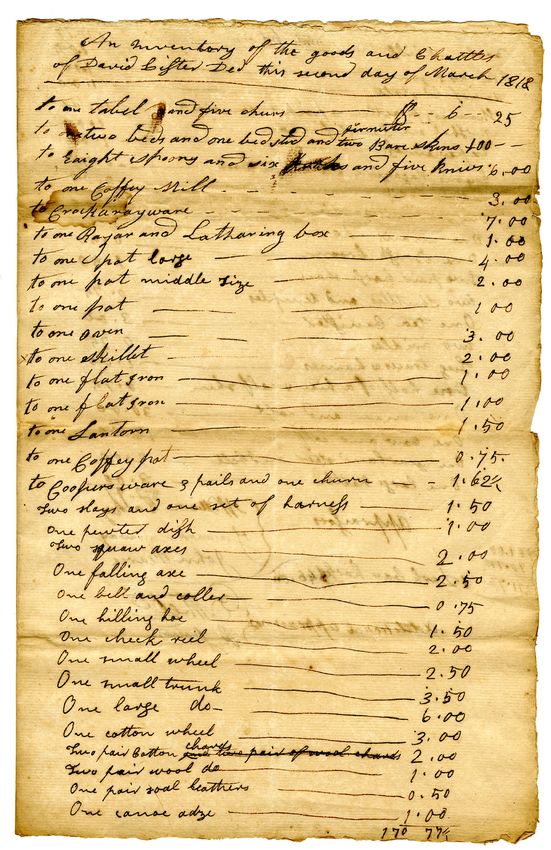 An Inventory of the goods and Chattles
of David Lister Ded this second day of March 1818
to one tabel and five churs $ - - 6 - 25
to two beds and one bedsted and two Bare skins 100 - -
to Eaight spoons and six and five knives 6.00
to one Coffey Mill 3.00
to Crockarayware 7.00
to one Razar and Latharing box 1.00
to one pot large 4.00
to one pat middle size 2.00
to one pat 1 00
to one oven 3.00
to one skillet 2.00
to one flat Iron 1.00
to one flat Iron 1.00
to one Lantorn 1.50
to one Coffey pat 0.75
to Coopers ware 3 pails and one churn 1.62½
Two slays and one set of harness 1.50
One pewter dish 1.00
Two squaw axes 2.00
One falling axe 2.50
One bell and coller 0.75
One hilling hoe 1.50
One check reel 2.00
One small wheel 2.50
One small trunk 3.50
One large do 6.00
One cotton wheel 3.00
Two pair Cotton chards two pair of wool chards 2.00
Two pair wool do 1.00
One pair soal leathers 0.50
One canoe adze 1.00
170 77½